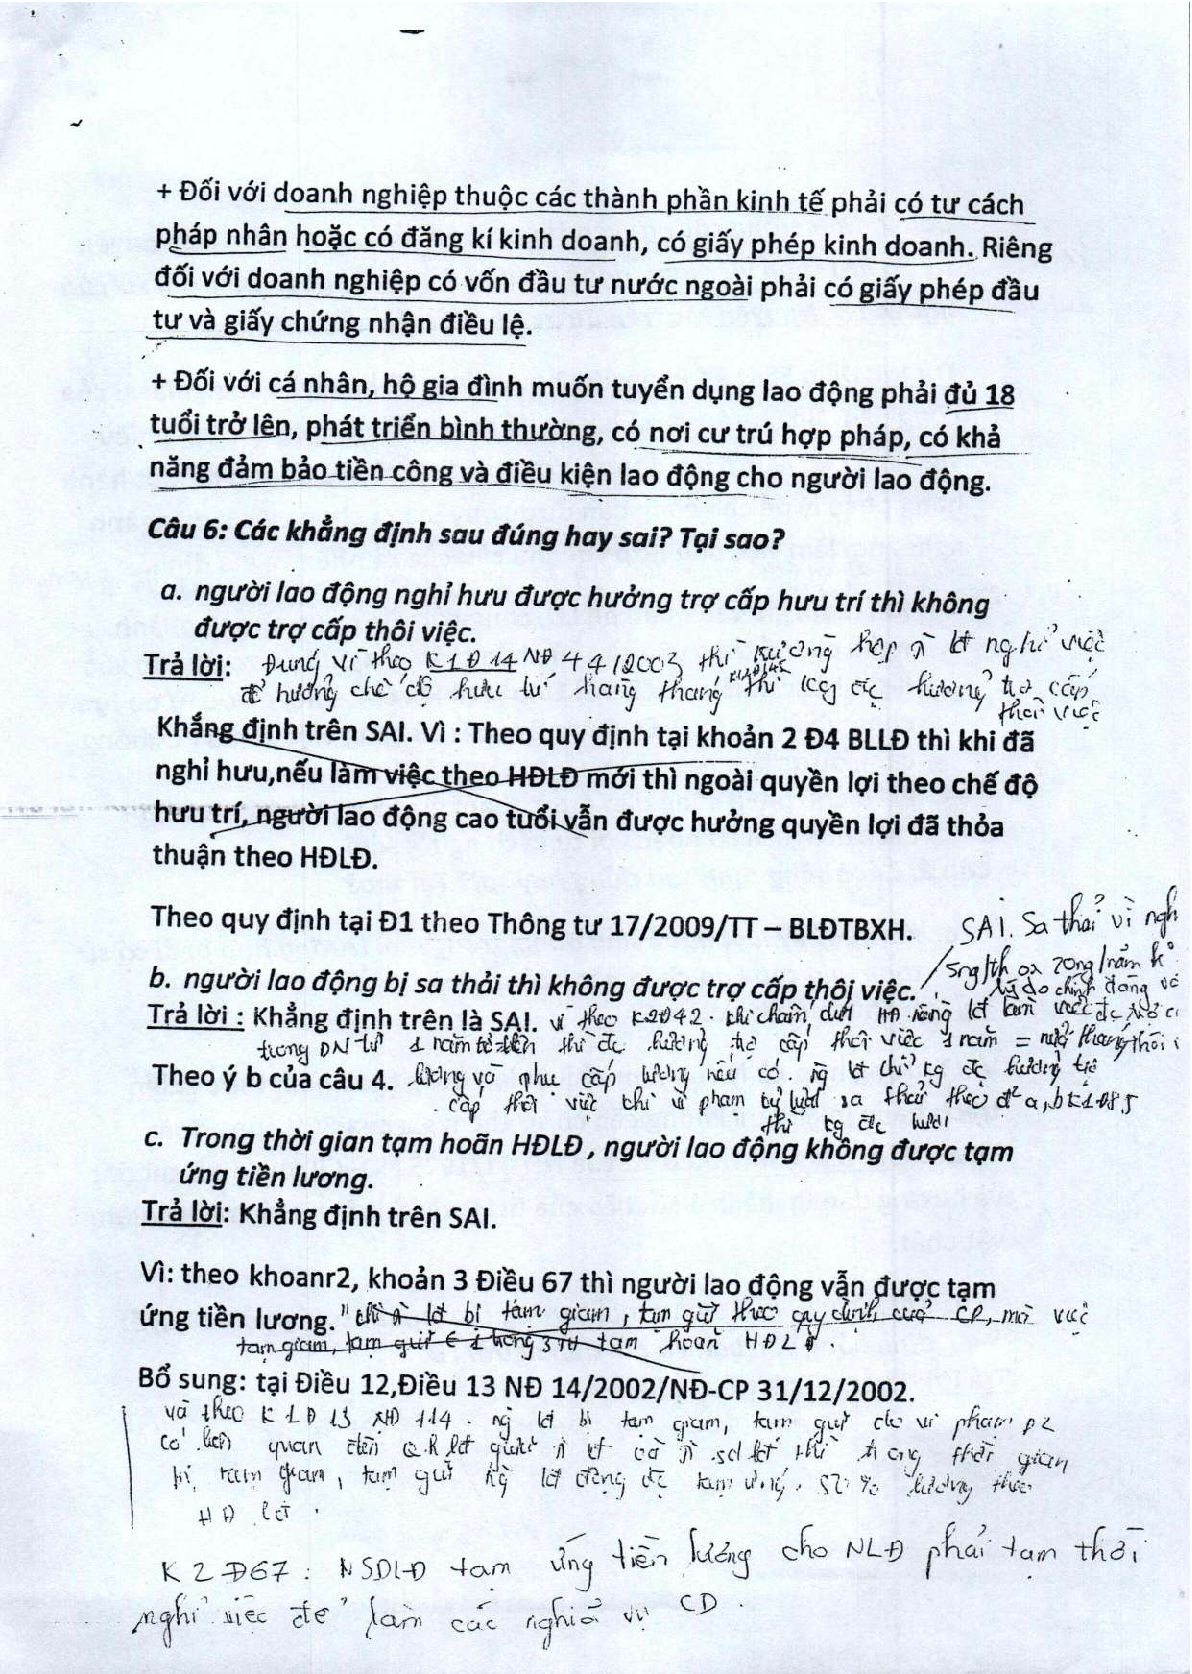 + Đối với doanh nghiệp thuộc các thành phần kinh tế phải có tư cách
pháp nhân hoặc có đăng kí kinh doanh, có giấy phép kinh doanh. Riêng
đối với doanh nghiệp có vốn đầu tư nước ngoài phải có giấy phép đầu
tư và giấy chứng nhận điều lệ.
+ Đối với cá nhân, hộ gia đình muốn tuyển dụng lao động phải đủ 18
tuổi trở lên, phát triển bình thường, có nơi cư trú hợp pháp, có khả
năng đảm bảo tiền công và điều kiện lao động cho người lao động.
Câu 6: Các khẳng định sau đúng hay sai? Tại sao?
a. người lao động nghỉ hưu được hưởng trợ cấp hưu trí thì không
được trợ cấp thôi việc.
Trả lời: Đúng vì theo K1Đ14 NĐ 44/2003 thì trường hợp lđ nghỉ việc
để hưởng chế độ hưu trí hàng tháng thì kg đc hưởng trợ cấp
thôi việc
Khẳng định trên SAI. Vì : Theo quy định tại khoản 2 Đ4 BLLĐ thì khi đã
nghỉ hưu,nếu làm việc theo HĐLĐ mới thì ngoài quyền lợi theo chế độ
hưu trí, người lao động cao tuổi vẫn được hưởng quyền lợi đã thỏa
thuận theo HĐLĐ.
Theo quy định tại Đ1 theo Thông tư 17/2009/TT – BLĐTBXH. SAI. Sa thải vì ngh
5ng/th 20ng/năm
b. người lao động bị sa thải thì không được trợ cấp thôi việc. lý do chính đáng
Trả lời : Khẳng định trên là SAI. vì theo khi chấm dứt HĐ lđ làm việc
trong DN từ 1 năm trở lên thì đc hưởng trợ cấp thôi việc 1 năm = nửa tháng
Theo ý b của câu 4. lương và phụ cấp lương nếu có. ng lđ chỉ kg đc hưởng trợ
cấp thôi việc khi vi phạm kỷ luật sa thải theo a,b K1Đ85
thì kg đc
c. Trong thời gian tạm hoãn HĐLĐ , người lao động không được tạm
ứng tiền lương.
Trả lời: Khẳng định trên SAI.
Vì: theo khoanr2, khoản 3 Điều 67 thì người lao động vẫn được tạm
ứng tiền lương. lđ bị tạm giam, tạm giữ theo quy định của CP, mà việc
tạm giam, tạm giữ 1 trong 3 TH tạm hoãn HĐLĐ.
Bổ sung: tại Điều 12,Điều 13 NĐ 14/2002/NĐ-CP 31/12/2002.
và theo K1Đ13 NĐ 114. ng lđ bị tạm giam, tạm giữ do vi phạm
có liên quan đến lđ giữa lđ và sd lđ thì trong thời gian
bị tạm giam, tạm giữ ng lđ đc tạm ứng 50% lương theo
HĐ lđ.
K2Đ67: NSDLĐ tạm ứng tiền lương cho NLĐ phải tạm thời
nghỉ việc để làm các nghĩa vụ CD.